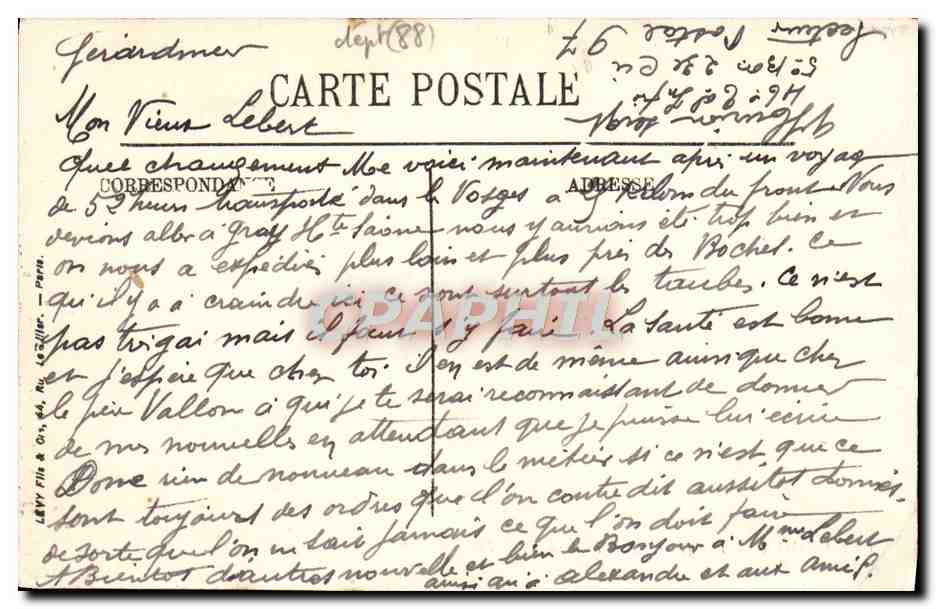 Gérardmer
dept (88)
CARTE POSTALE
Secteur Postal 97
5e Bon 23e Cie
Mon Vieux Lebert
Quel changement Me voici maintenant après un voyag
CORRESPONDANCE
ADRESSE
de 52 heurs transporté dans les Vosges a kilom du front. Nous
devions aller a Gray Hte Saône nous y aurions été trop bien et
on nous a expédiés plus loin et plus près des Boches. Ce
qu'il y a a craindre ici ce sont surtout les taubes. Ce n'est
pas trs gai mais il faut s'y faire. La santé est bonne
et j'espère que chez toi il en est de même ainsi que chez
le père Vallon a qui je te serai reconnaissant de donner
de mes nouvelles en attendant que je puisse lui écrire
Donc rien de nouveau dans le métier si ce n'est que ce
sont toujours des ordres que l'on contredit aussitot donnés.
de sorte que l'on ne sait jamais ce que l'on doit faire
A Bientot d'autres nouvelle et bien le Bonjour à Mme Lebert
ainsi qu'à alexandre et aux amis.
LEVY Fils & Cie, 44, Ru Letellier. — Paris.
CPAPHIL